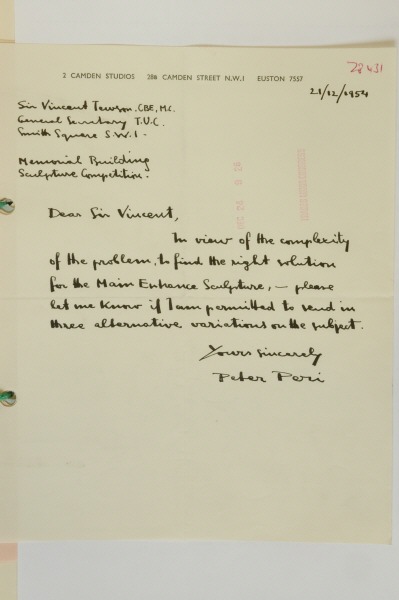 28431
2 CAMDEN STUDIOS 28B CAMDEN STREET N.W.1 EUSTON 7557
21/12/1954
Sir Vincent Tewson, CBE, M.C.
General Secretary T.U.C.
Smith Square S.W.1.
Memorial Building
Sculpture Competition.
Dear Sir Vincent,
In view of the complexity
of the problem, to find the right solution
for the Main Entrance Sculpture, – please
let me know if I am permitted to send in
three alternative variations on the subject.
Yours sincerely
Peter Peri